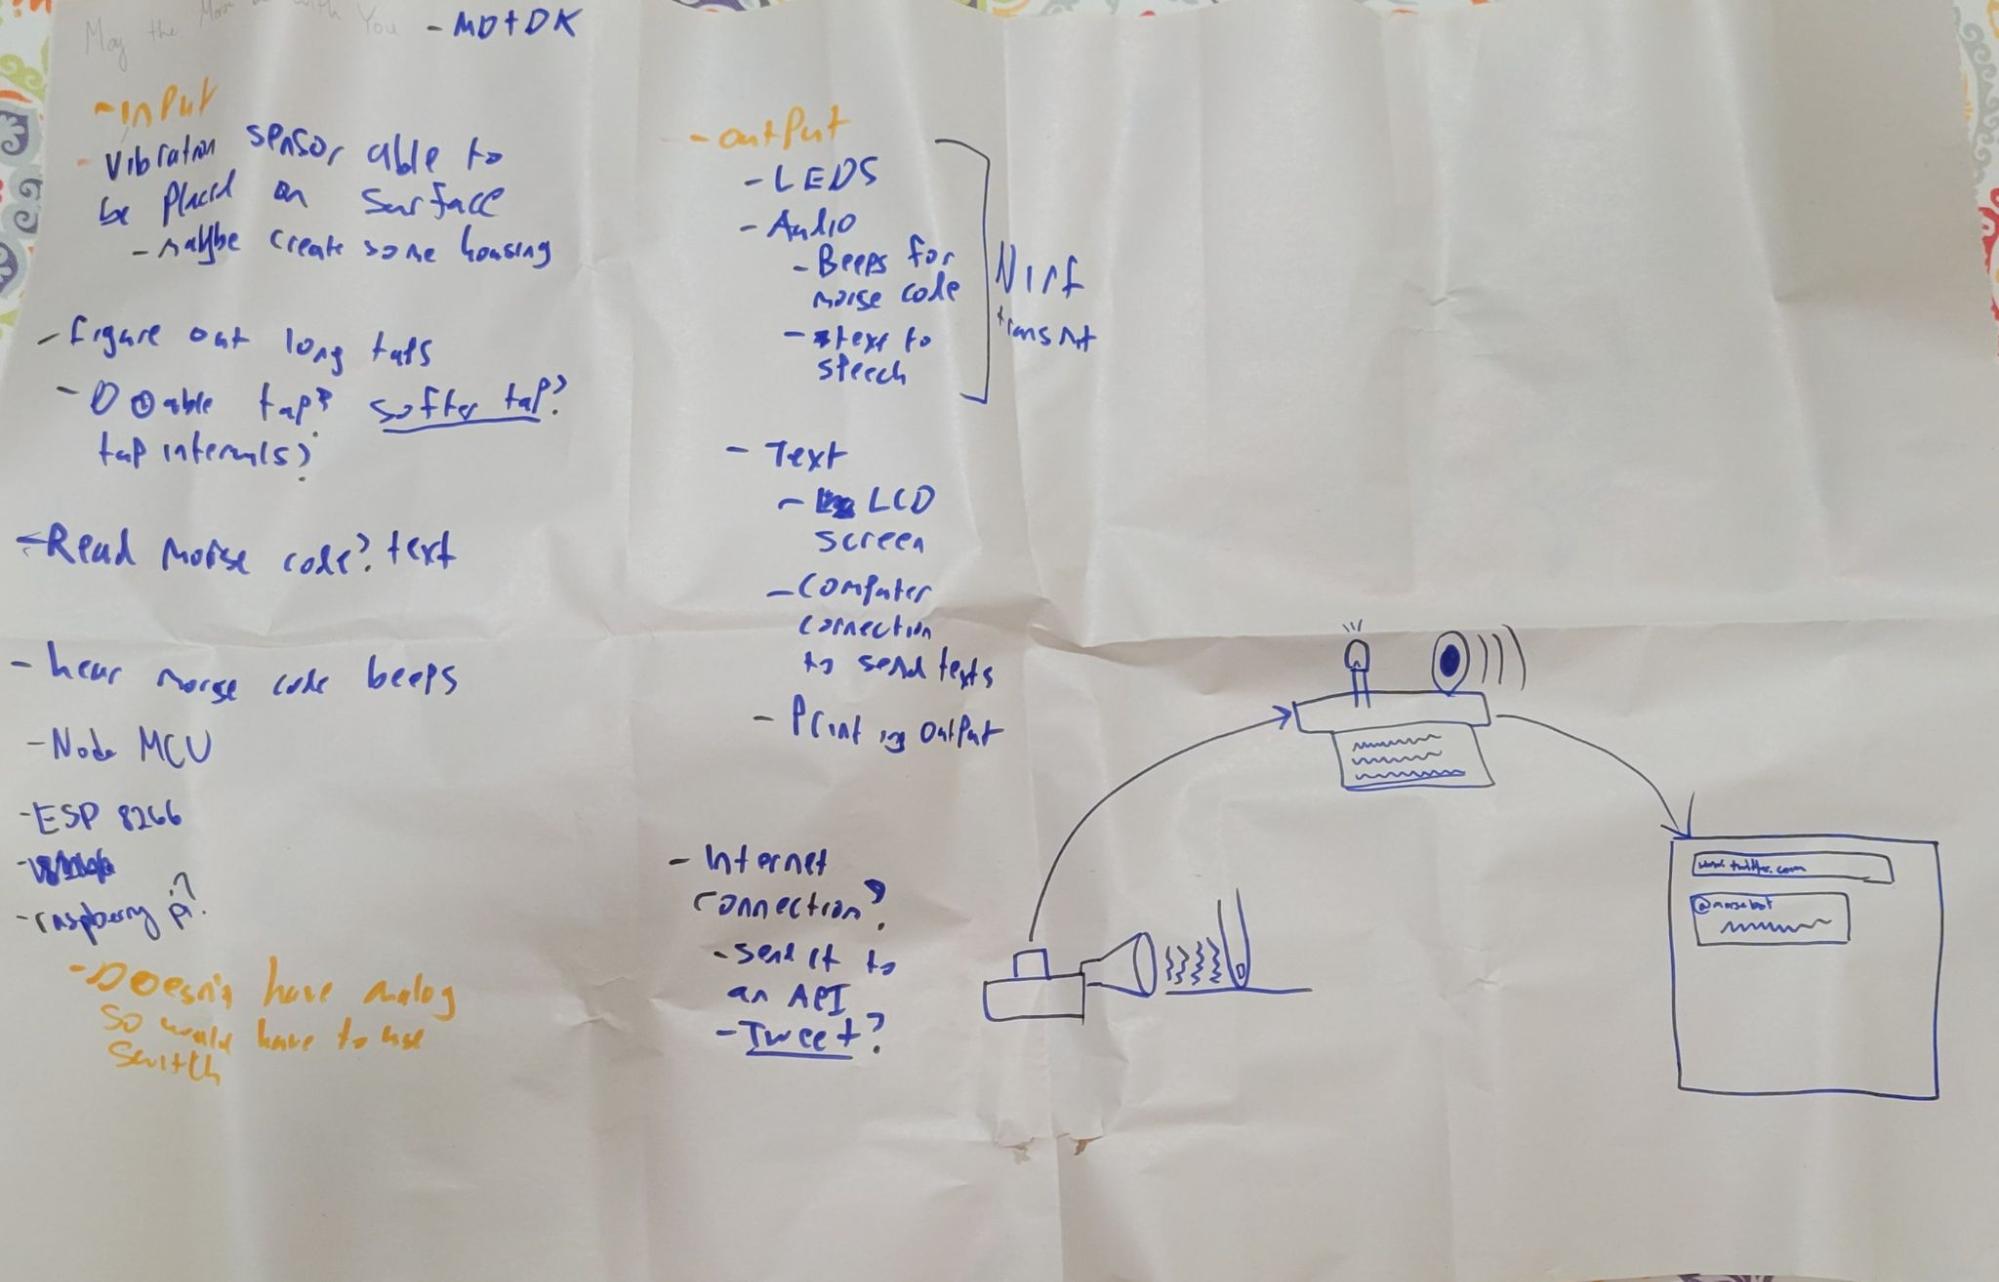 May the Morse be with You - MD+DK
- input
- Vibration sensor able to
be placed on surface
- maybe create some housing
- figure out long taps
- Double tap? softer tap?
tap intervals?
- Read morse code? text
- hear morse code beeps
- Node MCU
- ESP 8266
- raspberry pi?
- Doesn't have analog
so would have to use
switch
- output
- LEDS
- Audio
- Beeps for
morse code
- text to
speech
- Text
- LCD
screen
- Computer
connection
to send texts
- Printing output
- Internet
connection?
- send it to
an API
- Tweet?
www.twitter.com
@morsebot